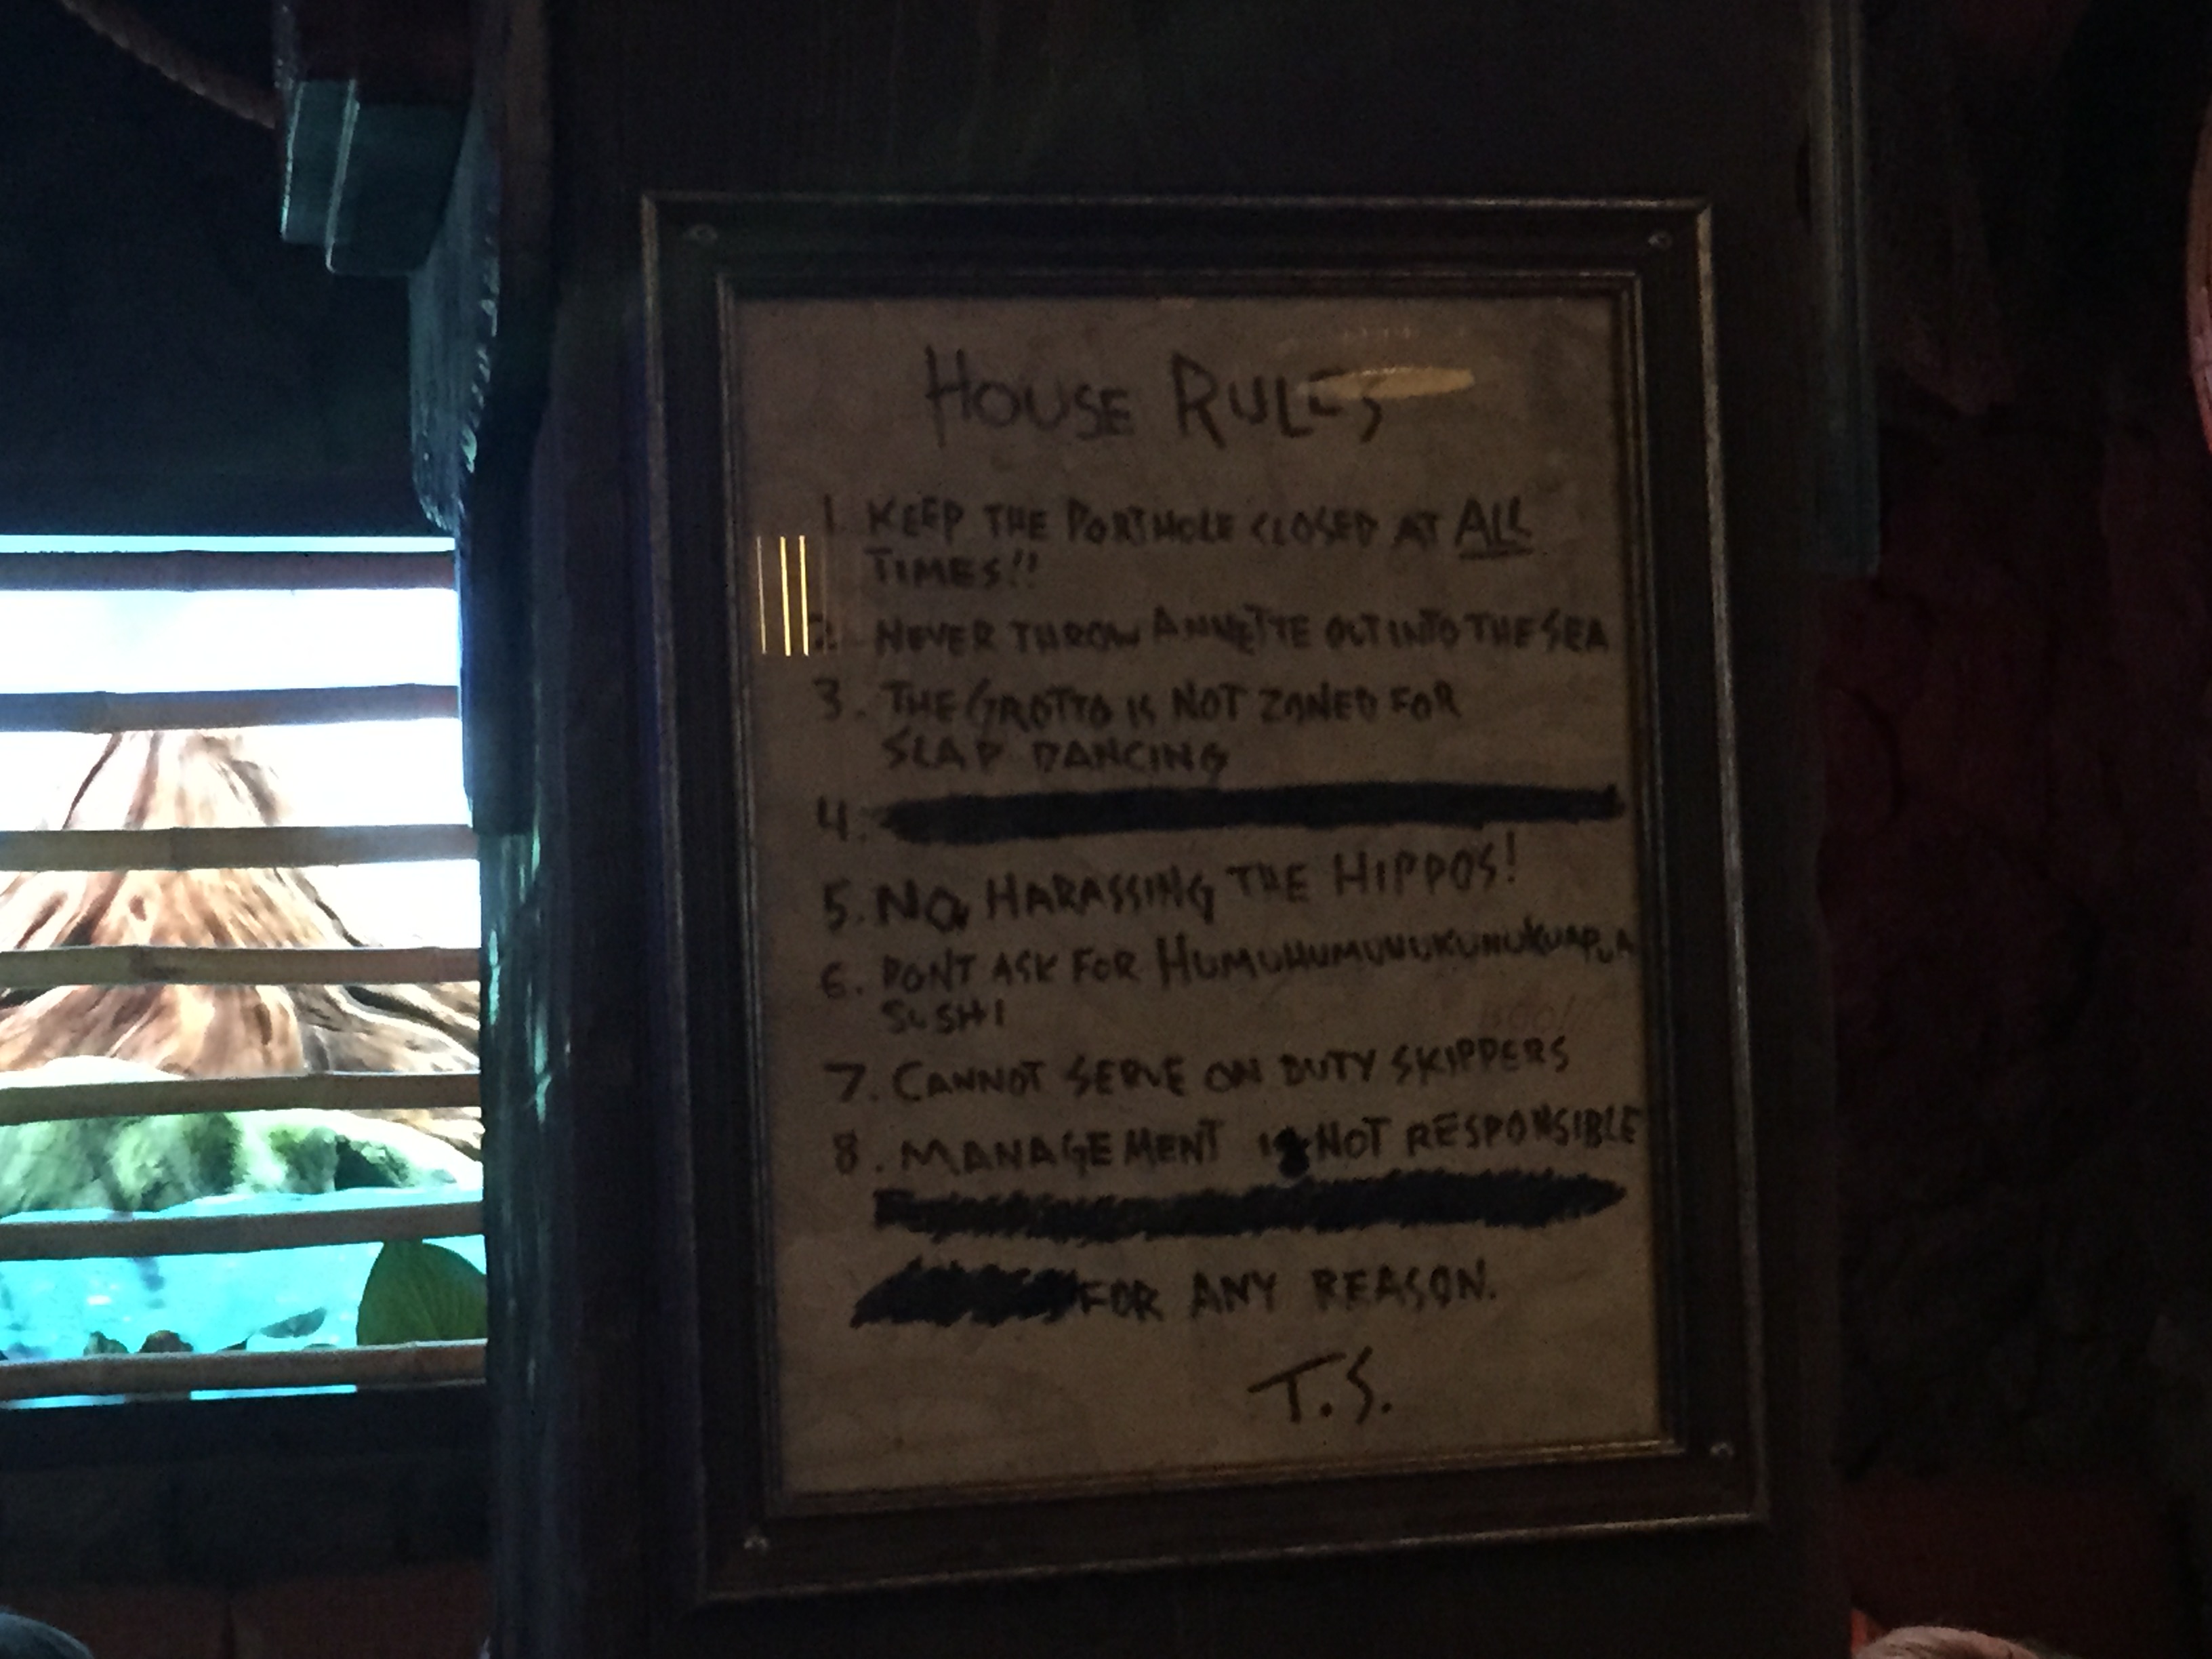 HOUSE RULES
1. KEEP THE PORTHOLE CLOSED AT ALL
TIMES!!
2. NEVER THROW ANNETTE OUT INTO THE SEA
3. THE GROTTO IS NOT ZONED FOR
SLAP DANCING
4.
5. NO HARASSING THE HIPPOS!
6. DONT ASK FOR HUMUHUMUNUKUNUKUAPUA
SUSHI
7. CANNOT SERVE ON DUTY SKIPPERS
8. MANAGEMENT IS NOT RESPONSIBLE
FOR ANY REASON.
T.S.